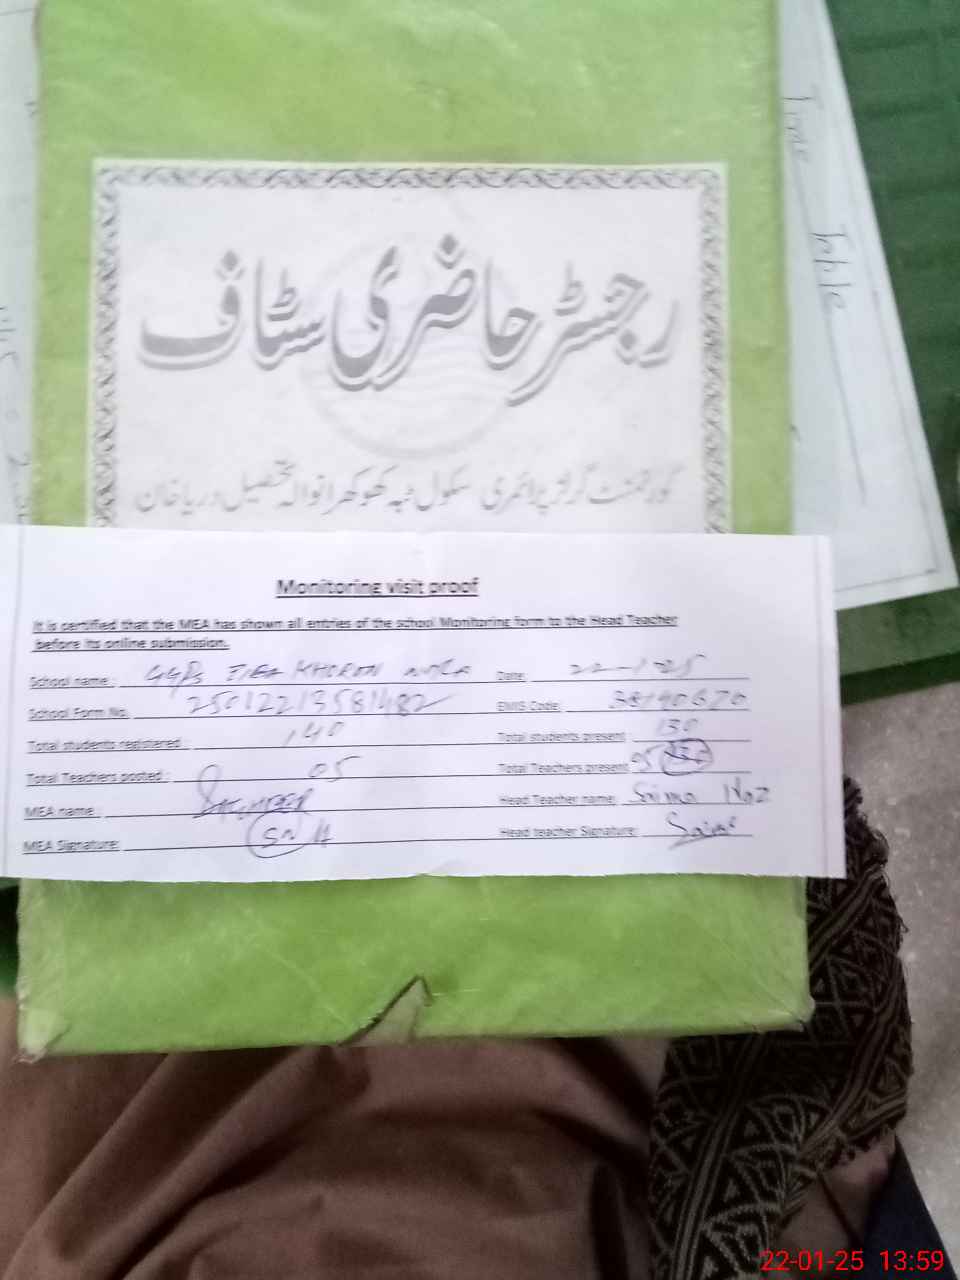 رجسٹر حاضری سٹاف
گورنمنٹ گرلز پرائمری سکول ٹبہ کھوکھرانوالہ تحصیل دریاخان
Time Table
Monitoring visit proof
It is certified that the MEA has shown all entries of the school Monitoring form to the Head Teacher
before its online submission.
School name: GGPS Date: 22-1-25
School Form No. 25012213581482 EMIS Code: 38140670
Total students registered: 140 Total students present: 130
Total Teachers posted: 05 Total Teachers present: 05
MEA name: Head Teacher name: Saima Naz
MEA Signature: Head teacher Signature: Saima
22-01-25 13:59